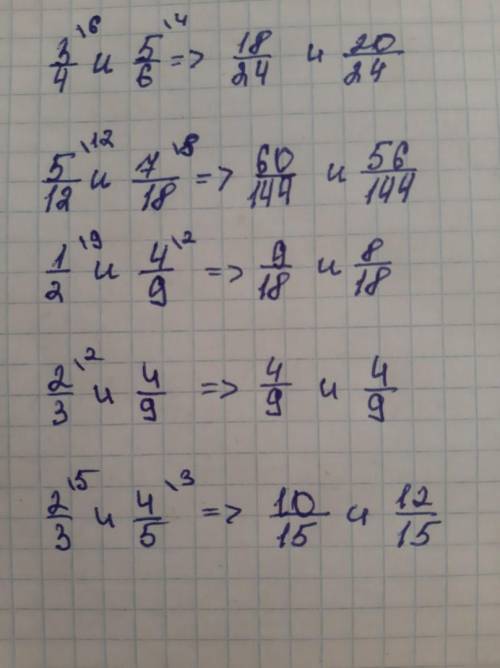 3/4 \6 и 5/6 \4 => 18/24 и 20/24
5/12 \12 и 7/18 \8 => 60/144 и 56/144
1/2 \9 и 4/9 \2 => 9/18 и 8/18
2/3 \2 и 4/9 => 4/9 и 4/9
2/3 \5 и 4/5 \3 => 10/15 и 12/15